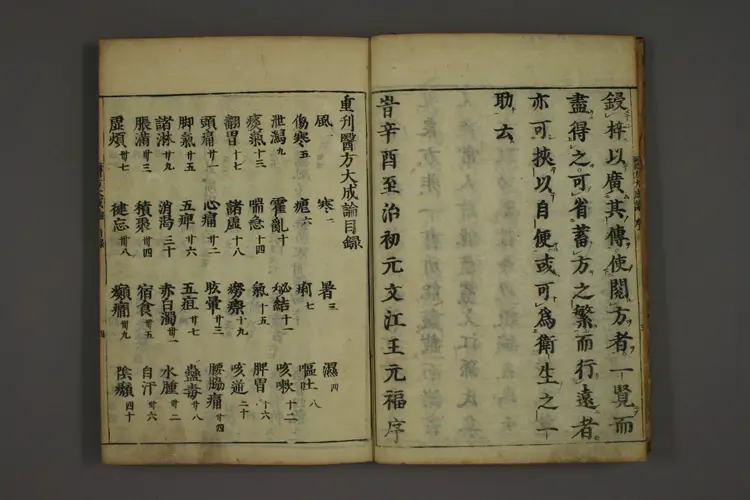 鋟梓以廣其傳使閱方者一覽而
盡得之可省蓄方之繁而行遠者
亦可挾以自便或可爲衛生之一
助云
旹辛酉至治初元文江王元福序
重刊醫方大成論目録
風一 寒二 暑三 濕四
傷寒五 瘧六 痢七 嘔吐八
泄瀉九 霍亂十 祕結十一 咳嗽十二
痰氣十三 喘急十四 氣十五 脾胃十六
翻胃十七 諸虛十八 勞瘵十九 咳逆二十
頭痛廿一 心痛廿二 眩暈廿三 腰脇痛廿四
脚氣廿五 五痺廿六 五疸廿七 蠱毒廿八
諸淋廿九 消渴三十 赤白濁卅一 水腫卅二
脹滿卅三 積聚卅四 宿食卅五 自汗卅六
虛煩卅七 健忘卅八 癲癇卅九 陰㿗四十